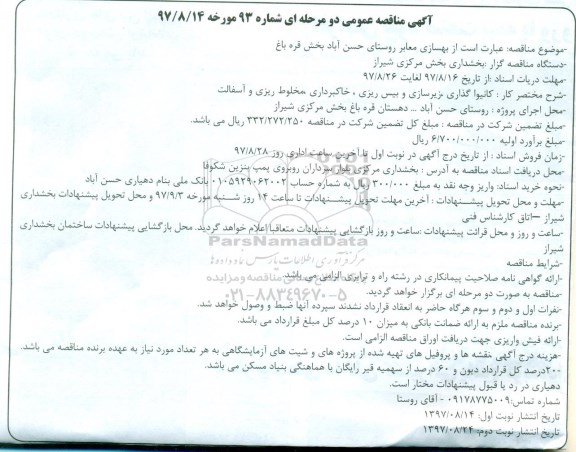 آگهی مناقصه عمومی دو مرحله ای شماره ۹۳ مورخه ۹۷/۸/۱۴
-موضوع مناقصه: عبارت است از بهسازی معابر روستای حسن آباد بخش قره باغ
-دستگاه مناقصه گزار :بخشداری بخش مرکزی شیراز
-مهلت دریات اسناد :از تاریخ ۹۷/۸/۱۶ لغایت ۹۷/۸/۲۶
-شرح مختصر کار : کانیوا گذاری ،زیرسازی و بیس ریزی ، خاکبرداری ،مخلوط ریزی و آسفالت
-محل اجرای پروژه : روستای حسن آباد ... دهستان قره باغ بخش مرکزی شیراز
-مبلغ تضمین شرکت در مناقصه : مبلغ کل تضمین شرکت در مناقصه ۳۳۲/۲۷۲/۲۵۰ ریال می باشد.
-مبلغ برآورد اولیه ۶/۷۰۰/۰۰۰/۰۰۰ ریال
-زمان فروش اسناد : از تاریخ درج آگهی در نوبت اول تا آخرین ساعت اداری روز ۹۷/۸/۲۸
-محل دریافت اسناد مناقصه به آدرس : بخشداری مرکزی بلوار سرداران روبروی پمپ بنزین شکوفا
-نحوه خرید اسناد: واریز وجه نقد به مبلغ ۳۰۰/۰۰۰ ریال به شماره حساب ۰۱۰۵۹۲۹۰۶۲۰۰۲ بانک ملی بنام دهیاری حسن آباد
-مهلت و محل تحویل پیشنهادات : آخرین مهلت تحویل پیشنهادات تا ساعت ۱۴ روز شنبه مورخه ۹۷/۹/۳ و محل تحویل پیشنهادات بخشداری
شیراز –اتاق کارشناس فنی
-ساعت و روز و محل قرائت پیشنهادات :ساعت و روز بازگشایی پیشنهادات متعاقبا اعلام خواهد گردید. محل بازگشایی پیشنهادات ساختمان بخشداری
شیراز
-شرایط مناقصه
-ارائه گواهی نامه صلاحیت پیمانکاری در رشته راه و ترابری الزامی می باشد.
-مناقصه به صورت دو مرحله ای برگزار خواهد گردید.
-نفرات اول و دوم و سوم هرگاه حاضر به انعقاد قرارداد نشدند سپرده آنها ضبط و وصول خواهد شد.
-برنده مناقصه ملزم به ارائه ضمانت بانکی به میزان ۱۰ درصد کل مبلغ قرارداد می باشد.
-ارائه فیش واریزی جهت دریافت اوراق مناقصه الزامی است.
-هزینه درج آگهی نقشه ها و پروفیل های تهیه شده از پروژه های و شیت های آزمایشگاهی به هر تعداد مورد نیاز به عهده برنده مناقصه می باشد.
-۲۰درصد کل قرارداد دیون و ۶۰ درصد از سهمیه قیر رایگان با هماهنگی بنیاد مسکن می باشد.
دهیاری در رد یا قبول پیشنهادات مختار است.
شماره تماس:۰۹۱۷۸۷۷۵۰۰۹ - آقای روستا
تاریخ انتشار نوبت اول: ۱۳۹۷/۰۸/۱۴
تاریخ انتشار نوبت دوم: ۱۳۹۷/۰۸/۲۴
ParsNamadData
۰۲۱-۸۸۳۴۹۶۷۰-۵